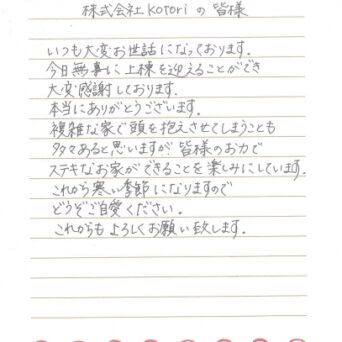 株式会社 kotori の 皆様
いつも大変お世話になっております.
今日無事に上棟を迎えることができ
大変感謝しております.
本当にありがとうございます.
複雑な家で頭を抱えさせてしまうことも
多々あると思いますが 皆様のお力で
ステキなお家ができることを楽しみにしています.
これから寒い季節になりますので
どうぞご自愛ください.
これからも よろしくお願い致します.